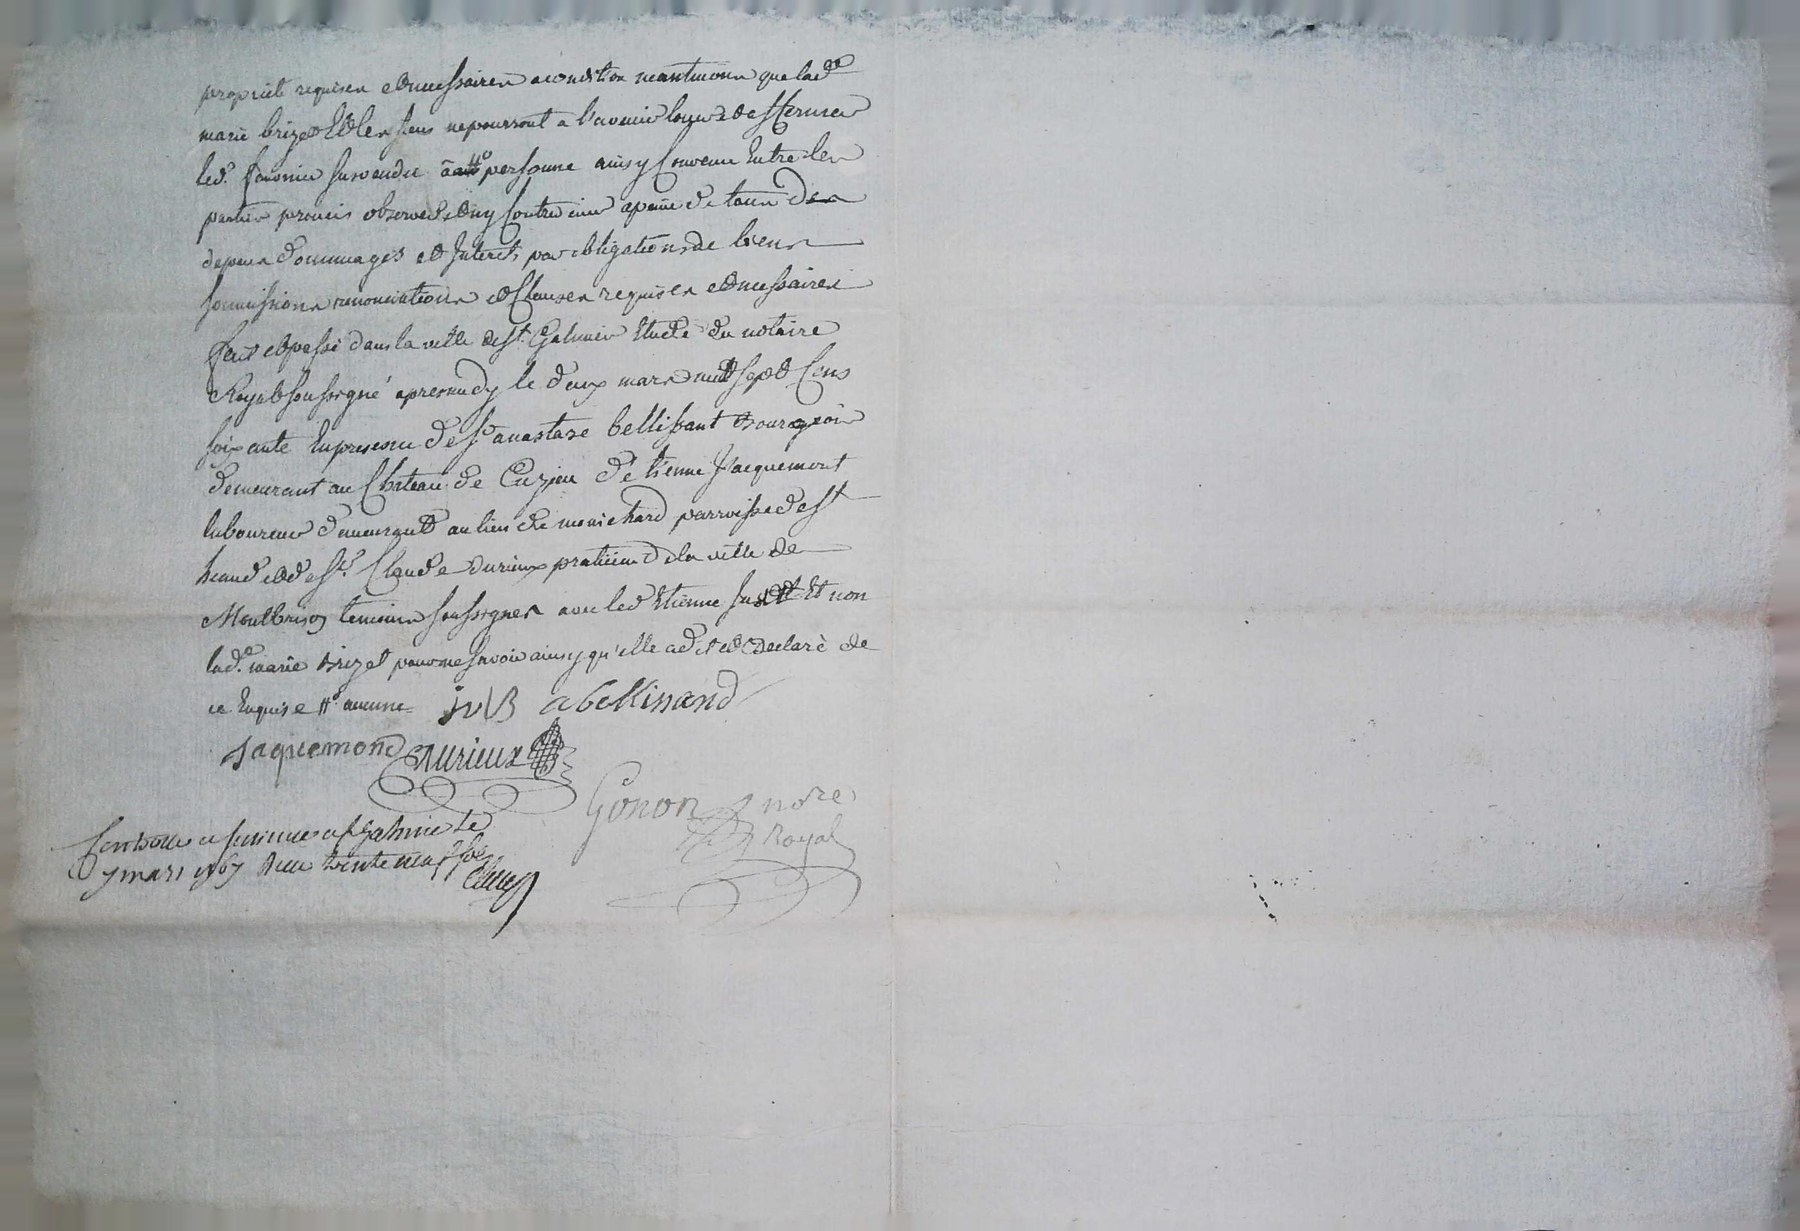 propriete requises et necessaires a condition neantmoins que lad.e
marie brizet Et les siens ne pourront a l'avenir louer et affermer
led. sursvendu a personne ainsy Convenu Entre les
parties promis observer et ny Contrevenir a peine de tous
depens dommages et Interets par obligations de biens
soumissions renonciations et Clauses requises et necessaires
fait et passé dans la ville de St. Galmier Etude du notaire
Royal soussigné apres midy le deux mars mil sept Cens
soixante En presence de Sr anastaze bellissant Bourgeois
demeurant au Chateau de Cuzieu d'Etienne Jacquemont
laboureur demeurant au lieu de parroisse de St
et de Sr. Claude durieux praticien de la ville de
Montbrison temoins soussignes avec led Etienne Et non
lad.e marie Brizet pour ne savoir ainsy qu'elle a dit et Declaré de
ce Enquise aucune JvB abellissand
Jaquemond Durieux
Gonon nore
Royal
Controllé a St Galmie le
7 mars 1767 Reçu trente neuf sols